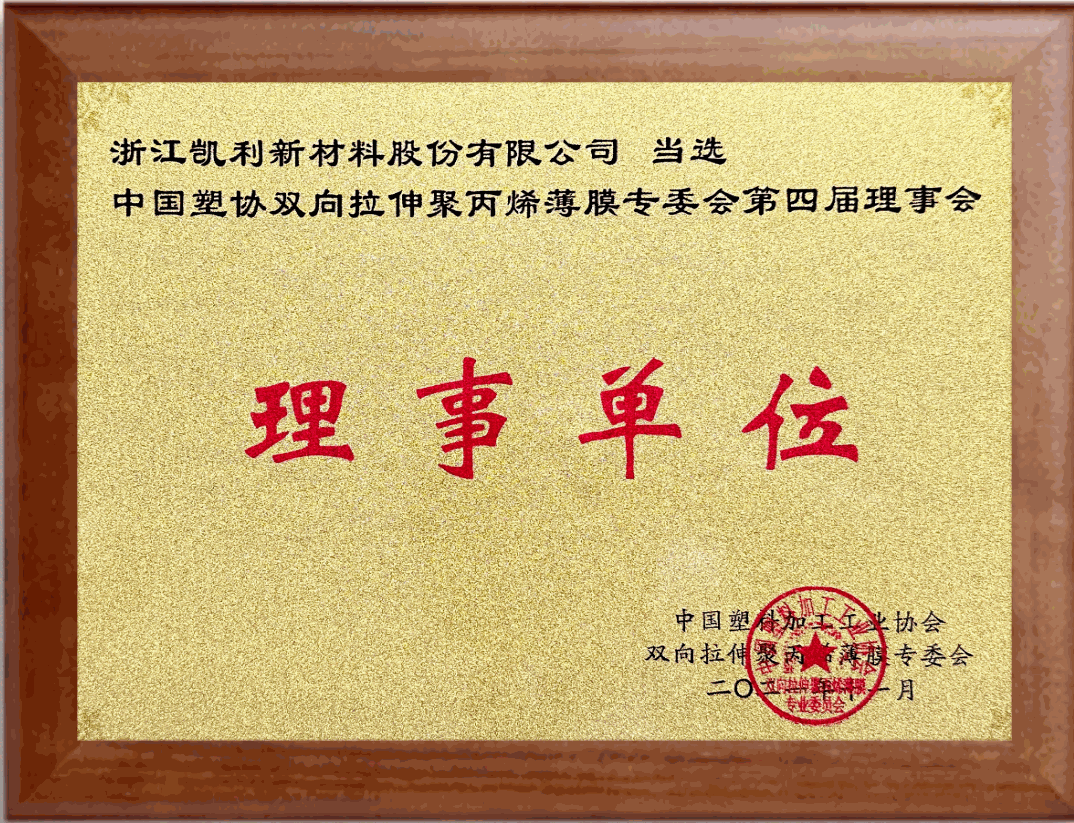 浙江凯利新材料股份有限公司 当选
中国塑协双向拉伸聚丙烯薄膜专委会第四届理事会
理事单位
中国塑料加工工业协会
双向拉伸聚丙烯薄膜专委会
二〇二一年十一月
双向拉伸聚丙烯薄膜
专业委员会